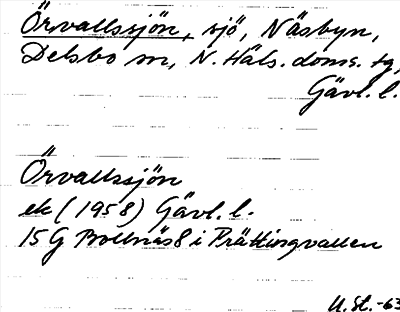 Örvallssjön, sjö, Näsbyn,
Delsbo sn, N. Häls. doms. tg,
Gävl. l.
Örvallssjön
ek (1958) Gävl. l.
15 G Bollnäs 8 i Prättingvallen
U. St. -63